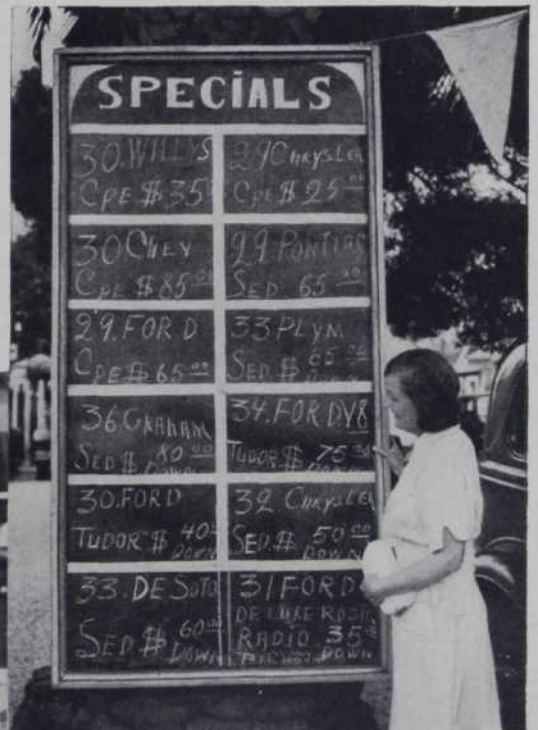 SPECIALS
30. WILLYS
CPE $ 35
29 CHRYSLER
CPE $ 25 00
30 CHEV
CPE $ 85.00
29 PONTIAC
SED 65 00
29. FORD
CPE $ 65 00
33 PLYM
SED $ 65 00
DOWN
36. GRAHAM
SED $ 80 00
DOWN
34. FORD V8
TUDOR $ 75 00
DOWN
30. FORD
TUDOR $ 40
DOWN
32 CHRYSLER
SED. $ 50 00
DOWN
33. DE SOTO
SED $ 60 00
DOWN
31 FORD
DE LUXE
RADIO 35
DOWN